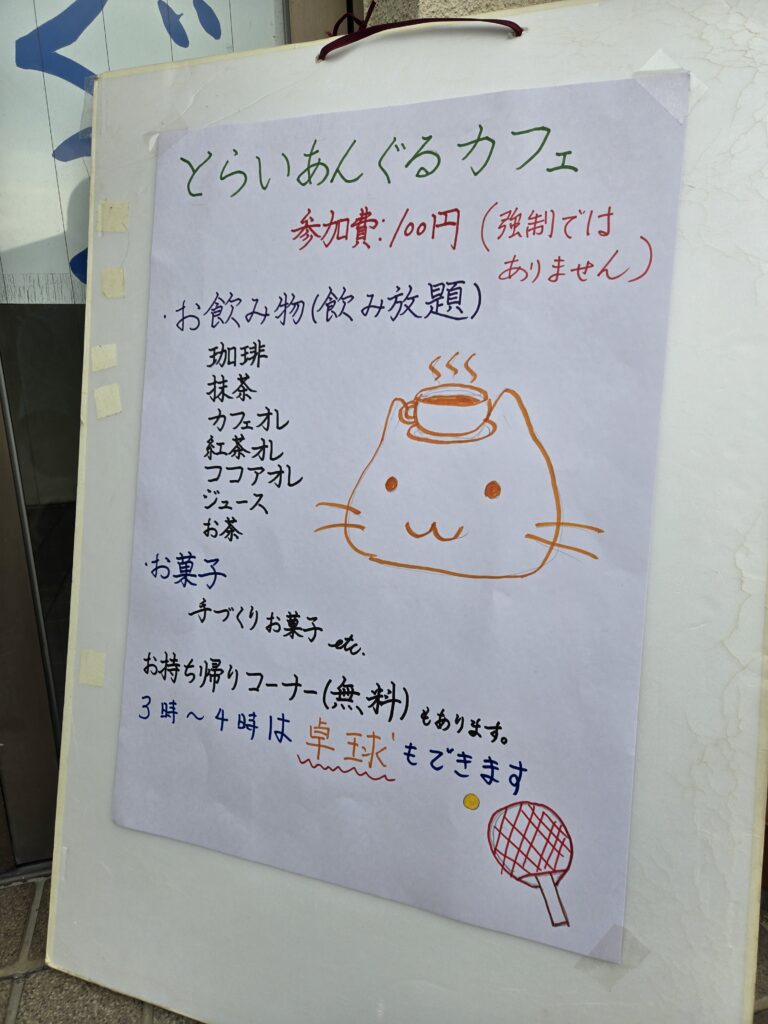 とらいあんぐるカフェ
参加費:100円(強制では
ありません)
・お飲み物(飲み放題)
珈琲
抹茶
カフェオレ
紅茶オレ
ココアオレ
ジュース
お茶
・お菓子
手づくりお菓子 etc.
お持ち帰りコーナー(無料)もあります。
3時~4時は卓球もできます